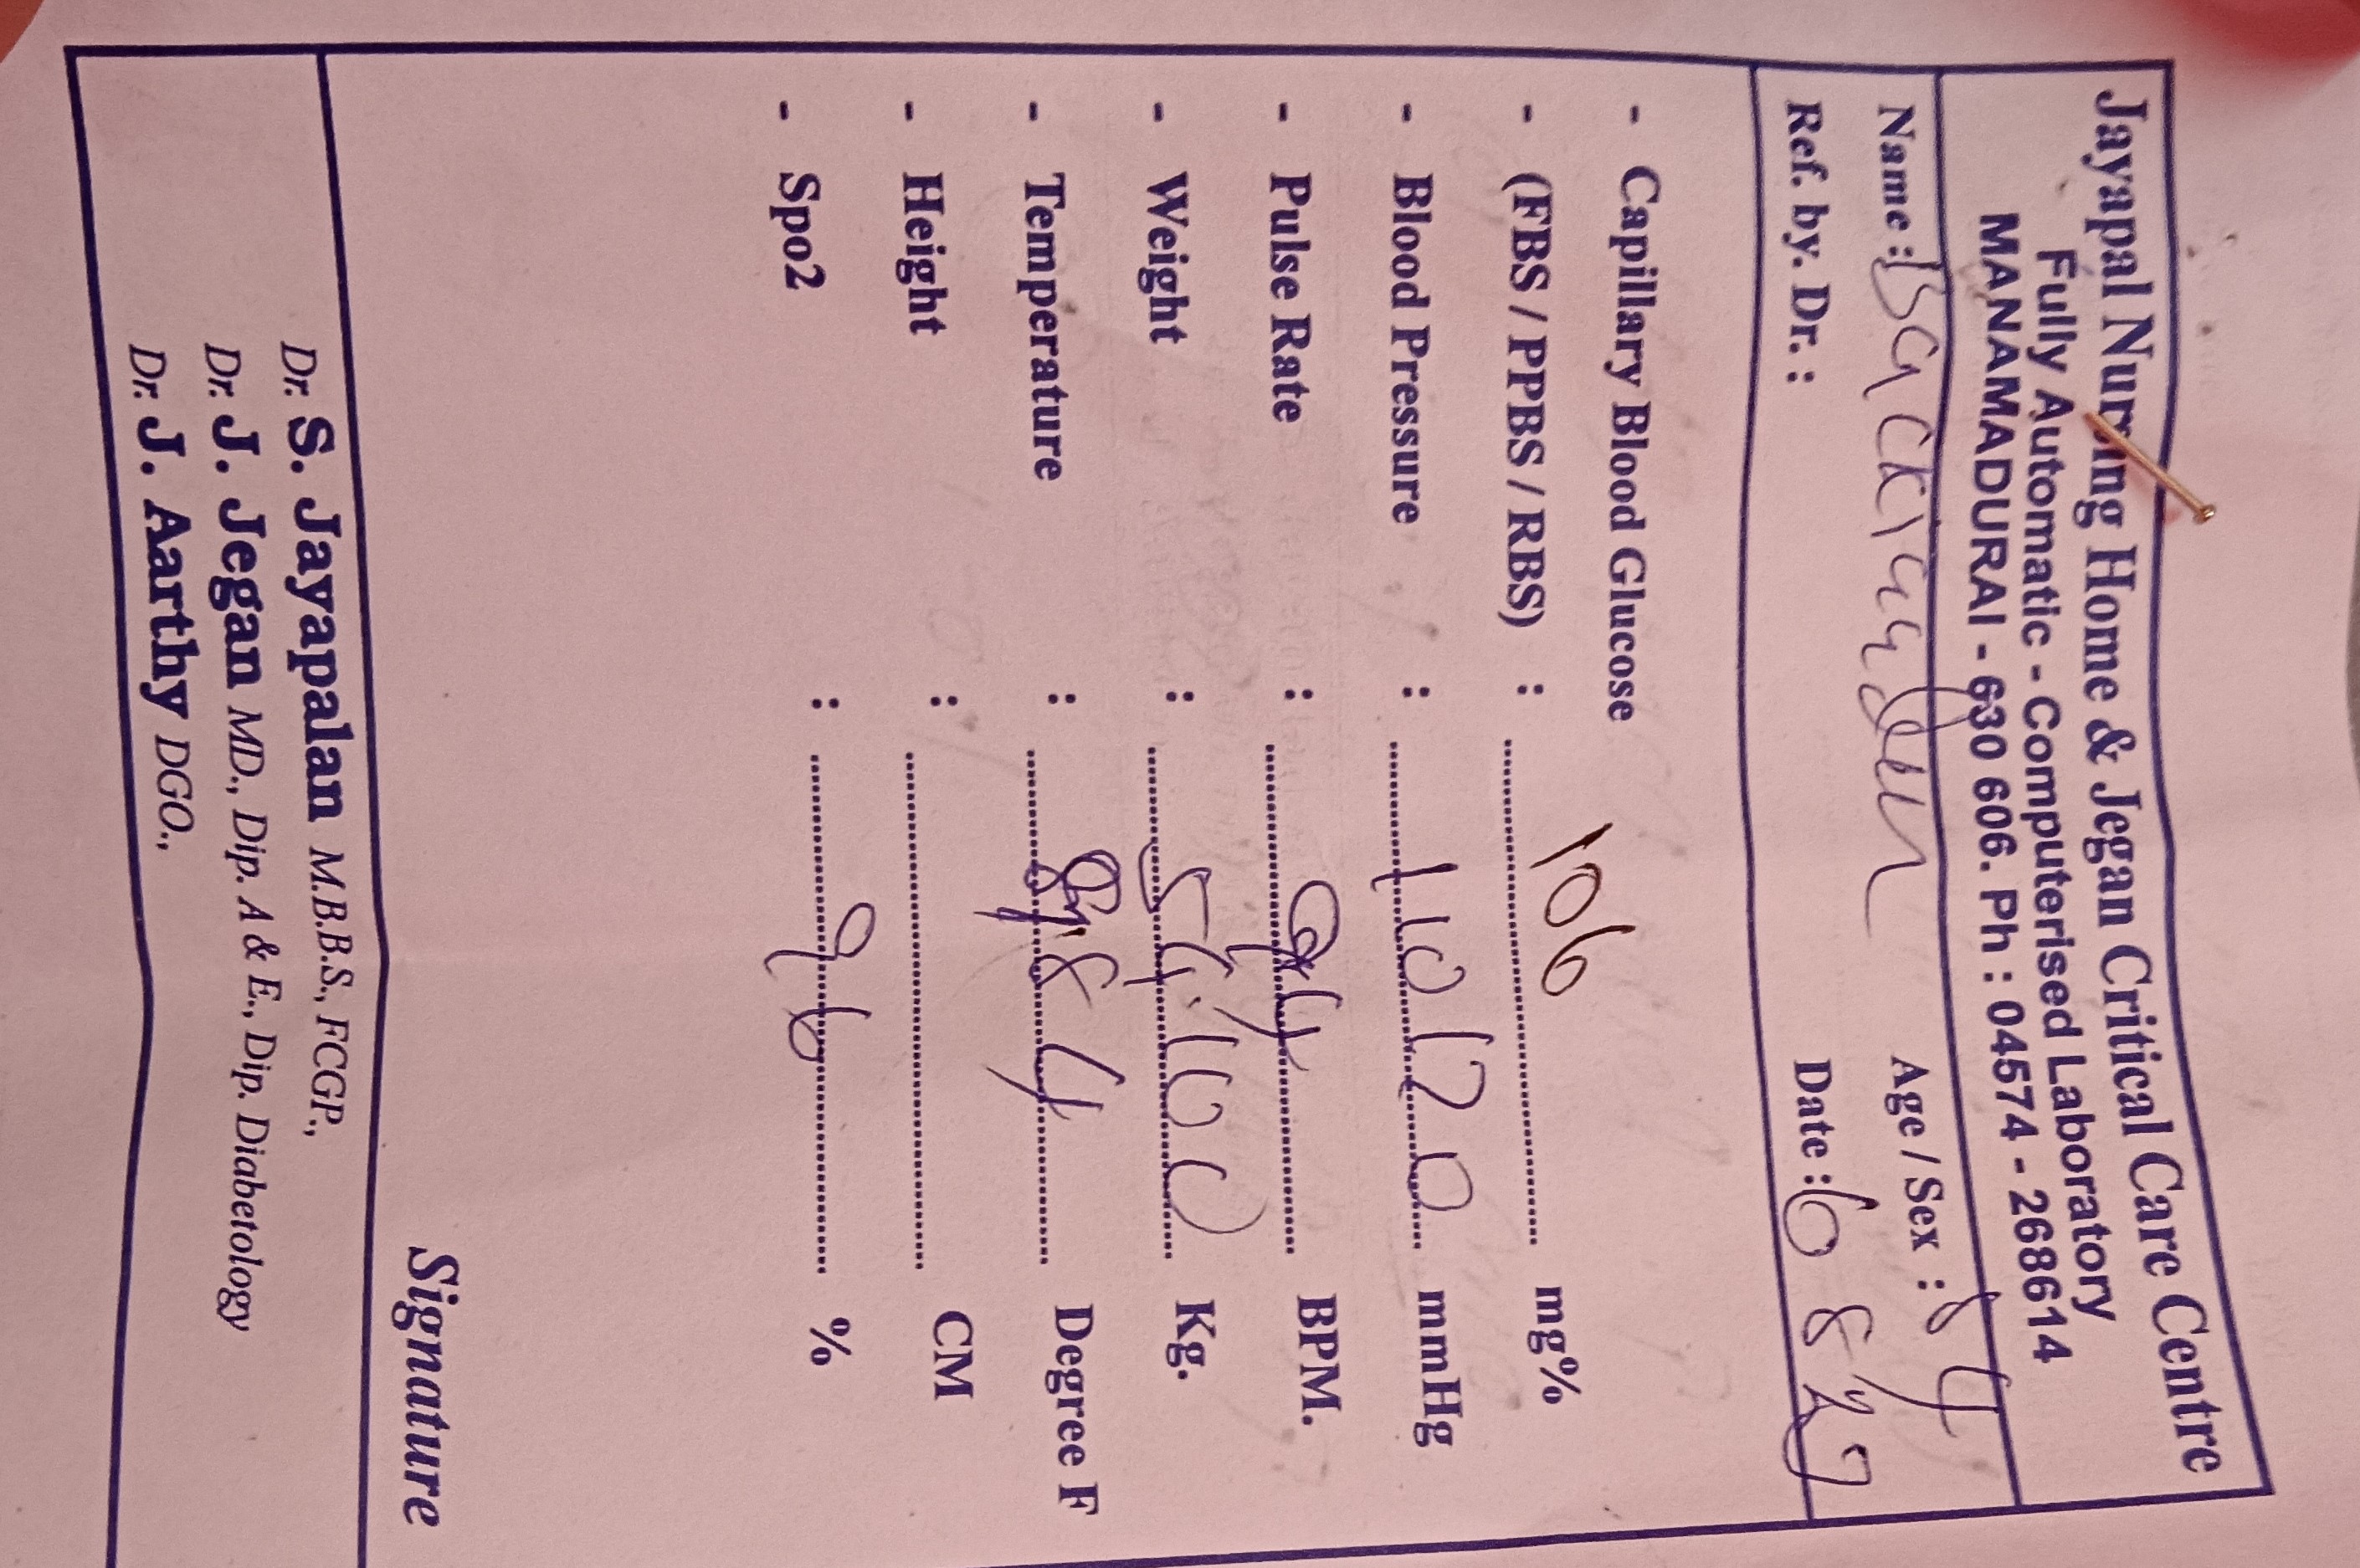 Jayapal Nursing Home & Jegan Critical Care Centre
Fully Automatic - Computerised Laboratory
MANAMADURAI - 630 606. Ph : 04574 - 268614
Name : Age / Sex :
Ref. by. Dr. : Date : 6
- Capillary Blood Glucose
- (FBS / PPBS / RBS) : 106 mg%
- Blood Pressure : 110/70 mmHg
- Pulse Rate : BPM.
- Weight : 54.100 Kg.
- Temperature : Degree F
- Height : CM
- Spo2 : 96 %
Signature
Dr. S. Jayapalan M.B.B.S., FCGP.,
Dr. J. Jegan MD., Dip. A & E., Dip. Diabetology
Dr. J. Aarthy DGO.,